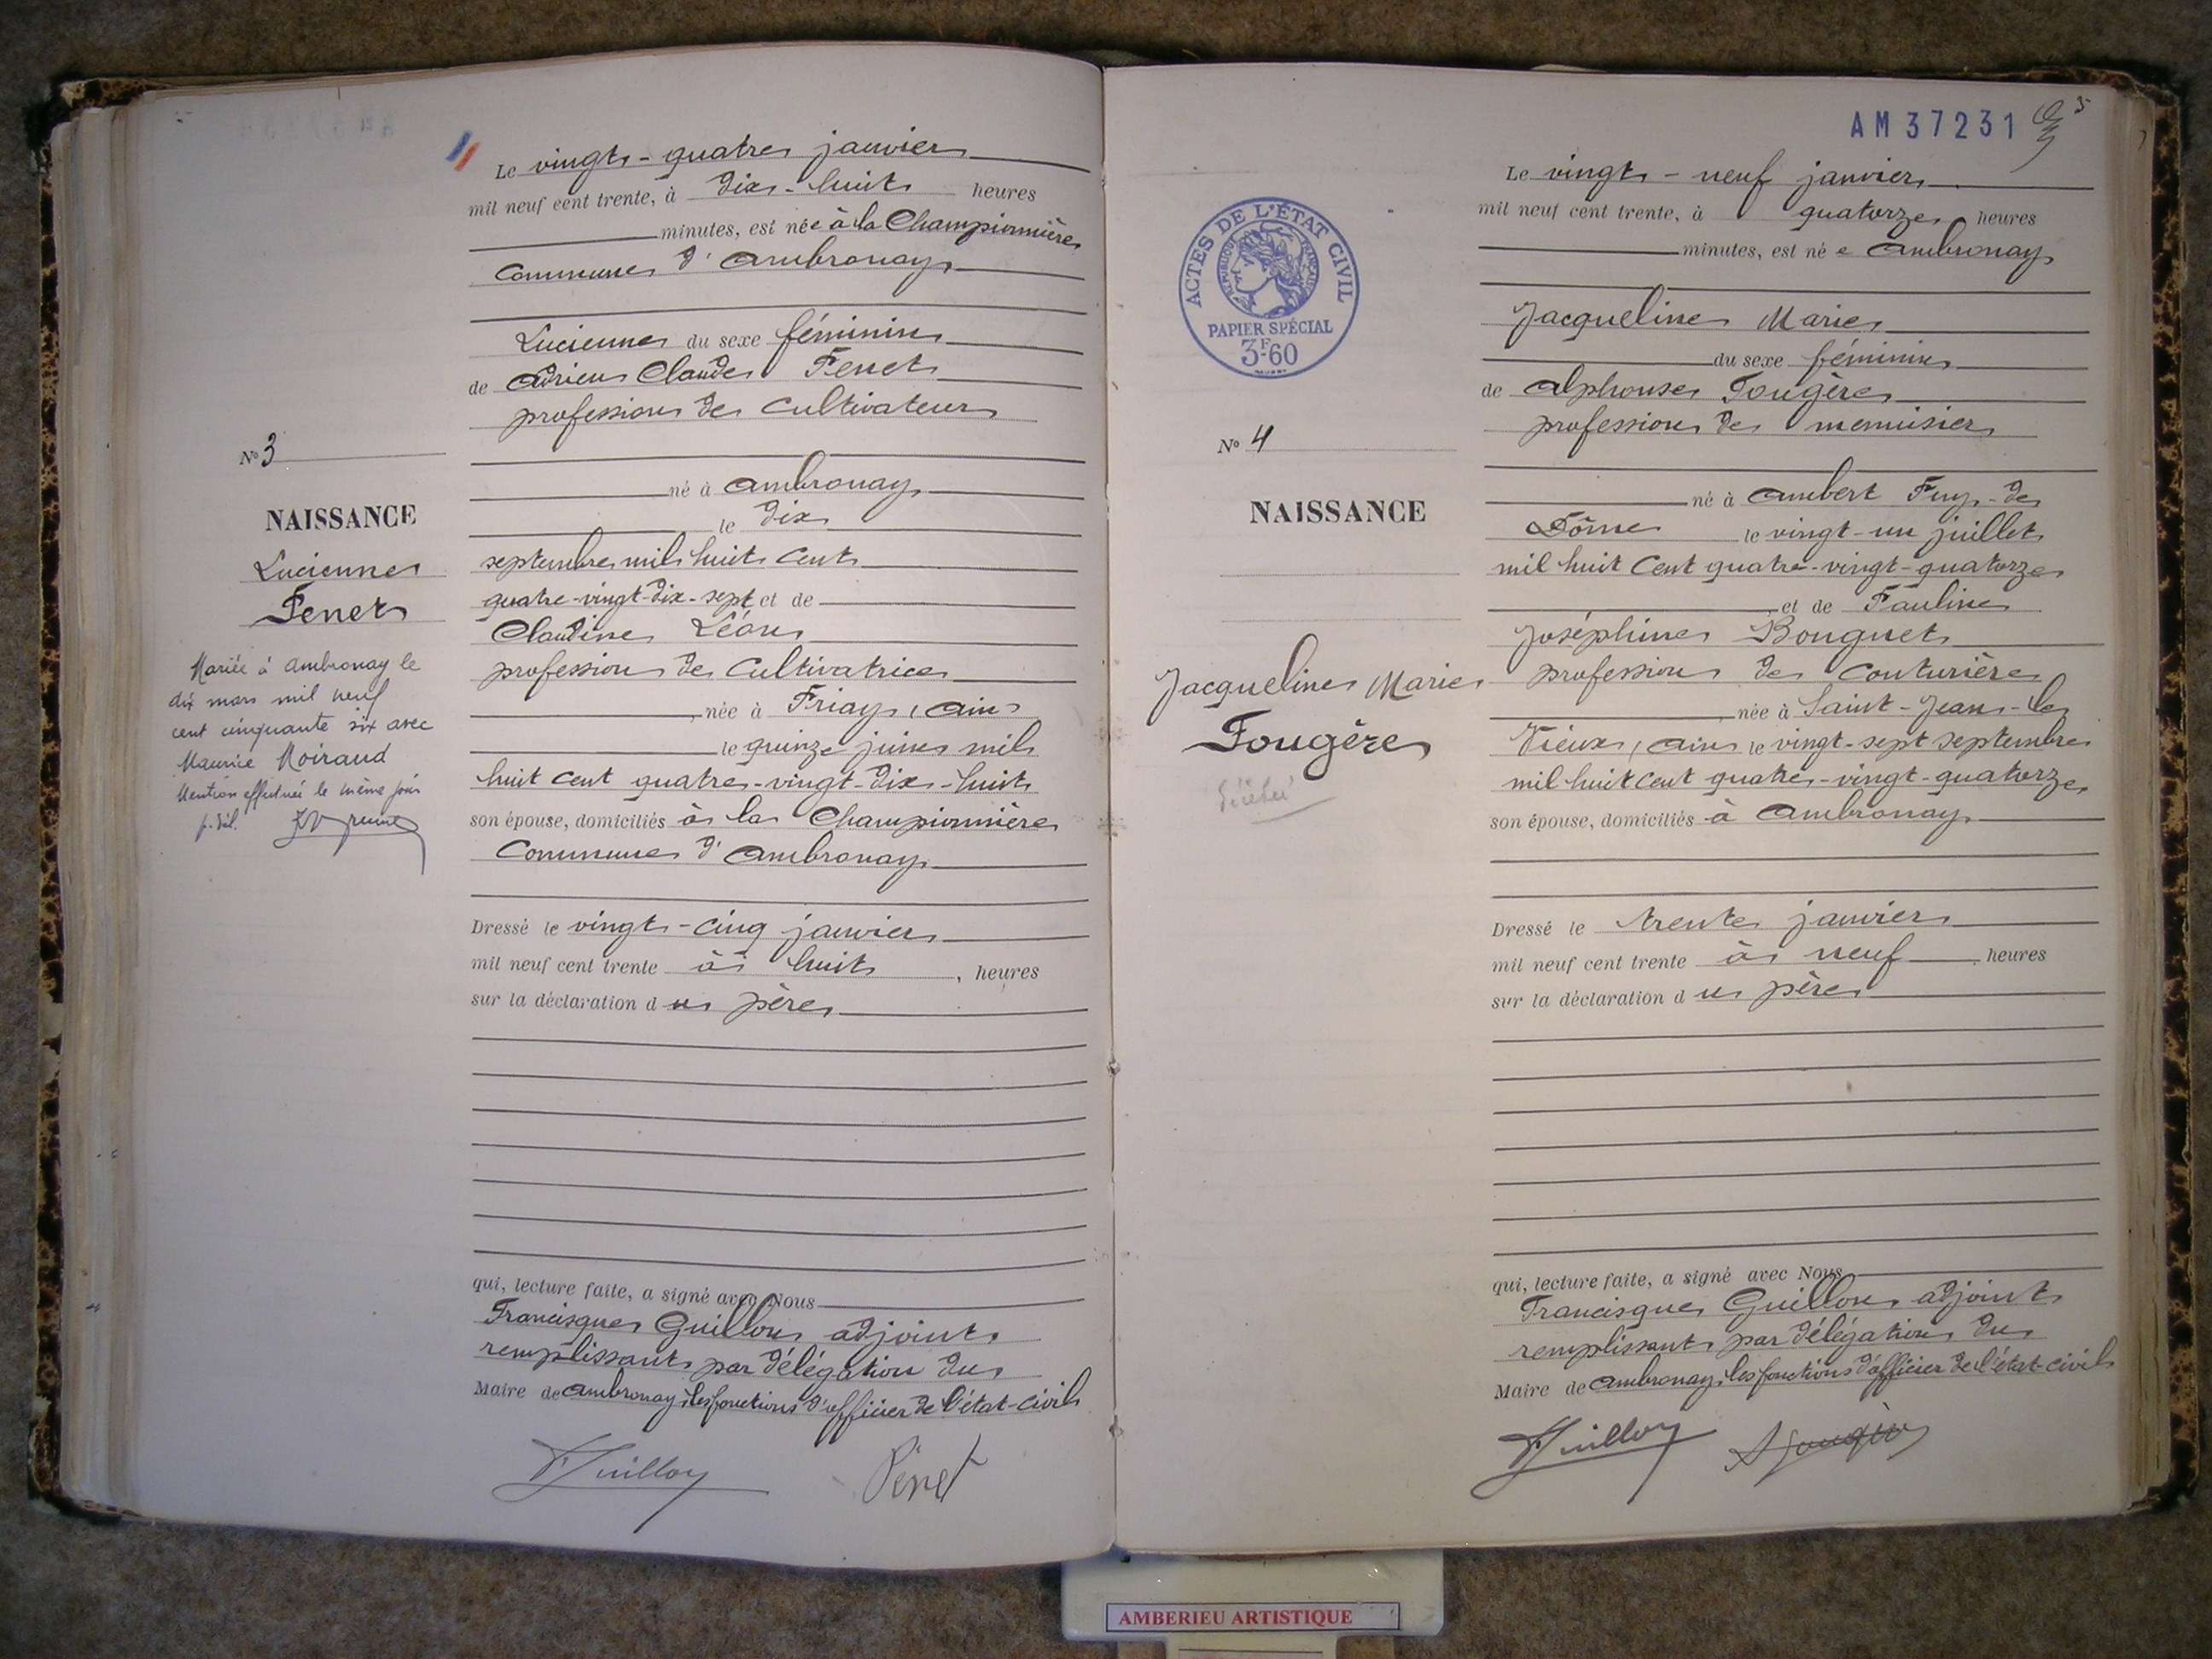 Le vingt-quatre janvier
mil neuf cent trente, à dix-huit heures
minutes, est née à la Championnière
commune d'Ambronay
Lucienne du sexe féminin
de Adrien Claude Penet
profession de cultivateur
né à Ambronay
le dix
septembre mil huit cent
quatre-vingt-dix-sept et de
Claudine Léon
profession de cultivatrice
, née à Priay, Ain
le quinze juin mil
huit cent quatre-vingt-dix-huit
son épouse, domiciliés à la Championnière
commune d'Ambronay
Dressé le vingt-cinq janvier
mil neuf cent trente à huit , heures
sur la déclaration du père
qui, lecture faite, a signé avec Nous
Francisque Guillon adjoint
remplissant par délégation du
Maire de Ambronay, les fonctions d'officier de l'état-civil
Guillon Penet
No 3
NAISSANCE
Lucienne
Penet
Mariée à Ambronay le
dix mars mil neuf
cent cinquante six avec
Maurice Moiraud
Mention effectuée le même jour
p. dél.
AM 37231
5
ACTES DE L'ÉTAT CIVIL
RÉPUBLIQUE FRANÇAISE
PAPIER SPÉCIAL
3F.60
No 4
NAISSANCE
Jacqueline Marie
Fougère
décédée
Le vingt-neuf janvier
mil neuf cent trente, à quatorze heures
minutes, est née Ambronay
Jacqueline Marie
du sexe féminin
de Alphonse Fougère
profession de menuisier
né à Ambert Puy-de
Dôme le vingt-un juillet
mil huit cent quatre-vingt-quatorze
, et de Pauline
Joséphine Bouguet
profession de couturière
, née à Saint-Jean-le
Vieux, Ain le vingt-sept septembre
mil huit cent quatre-vingt-quatorze,
son épouse, domiciliés à Ambronay
Dressé le trente janvier
mil neuf cent trente à neuf heures
sur la déclaration du père
qui, lecture faite, a signé avec Nous
Francisque Guillon adjoint
remplissant par délégation du
Maire de Ambronay, les fonctions d'officier de l'état-civil
Guillon A Fougère
AMBERIEU ARTISTIQUE